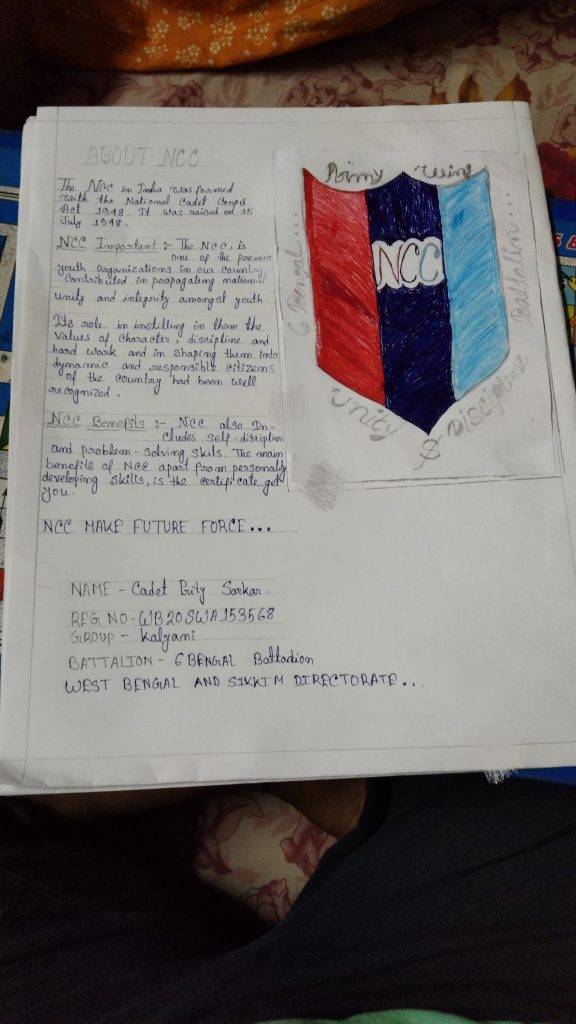 ABOUT NCC
The NCC in India was formed
with the National Cadet Corps
Act 1948. It was raised on 15
July 1948.
NCC Important :- The NCC, is
one of the
youth organizations in our country
Contributed in propagating national
unity and integrity amongst youth
Its role in instilling in them the
values of character, discipline and
hard work and in shaping them into
dynamic and responsible citizens
of the country had been well
recognized.
NCC Benefits :- NCC also In-
cludes self-discipline
and problem-solving skils. The main
benefits of NCC apart from personaly
developing skills, is the certificate get
you.
NCC MAKE FUTURE FORCE...
NAME - Cadet Prity Sarkar.
REG NO - WB20SWA153568
GROUP - Kalyani
BATTALION - 6 BENGAL Battalion
WEST BENGAL AND SIKKIM DIRECTORATE...
Army Wing
6 Bengal...
NCC
Battalin...
Unity
& Discipline